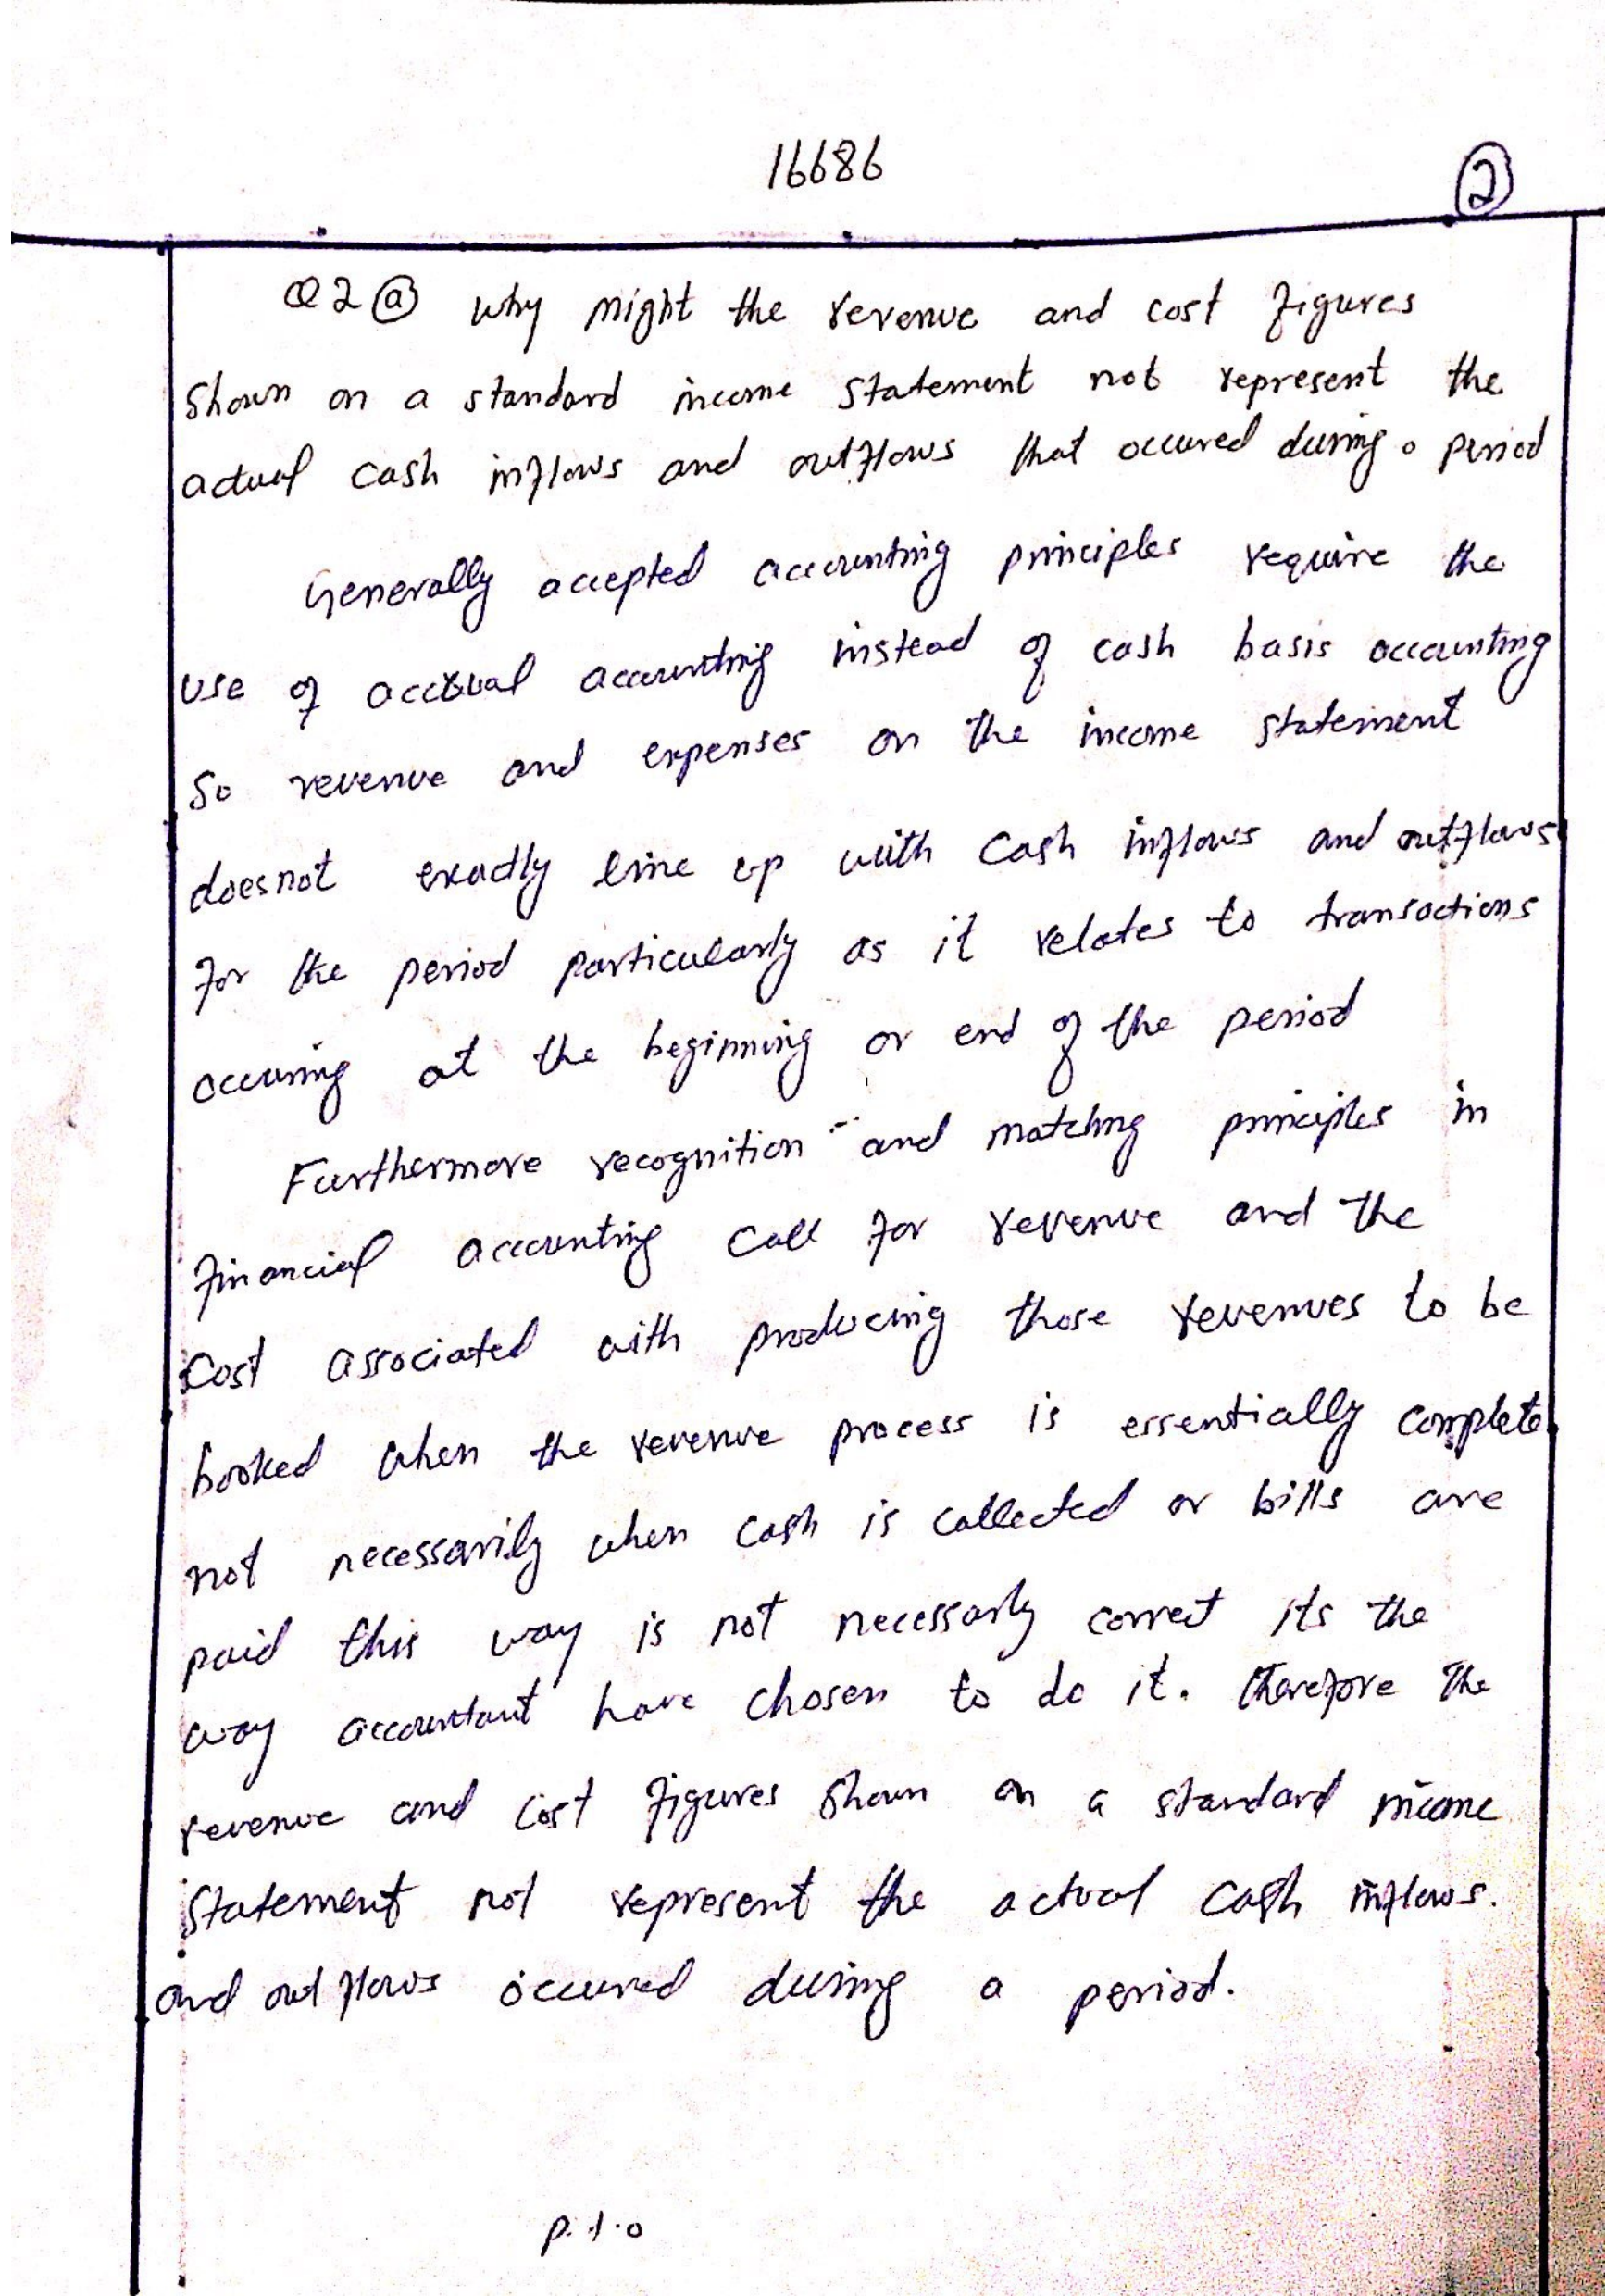 16686
2
Q2 a why might the revenue and cost figures
shown on a standard income statement not represent the
actual cash inflows and outflows that occured during a period
Generally accepted accounting principles require the
use of accrual accounting instead of cash basis accounting
So revenue and expenses on the income statement
doesnot exactly line up with cash inflows and outflows
for the period particularly as it relates to transactions
occuring at the beginning or end of the period
Furthermore recognition and matching principles in
financial accounting call for revenue and the
cost associated with producing those revenues to be
booked when the revenue process is essentially complete
not necessarily when cash is collected or bills are
paid this way is not necessarly correct its the
way accountant have chosen to do it. therefore the
revenue and cost figures shown on a standard income
statement not represent the actual cash inflows.
and out flows occured during a period.
P.T.O